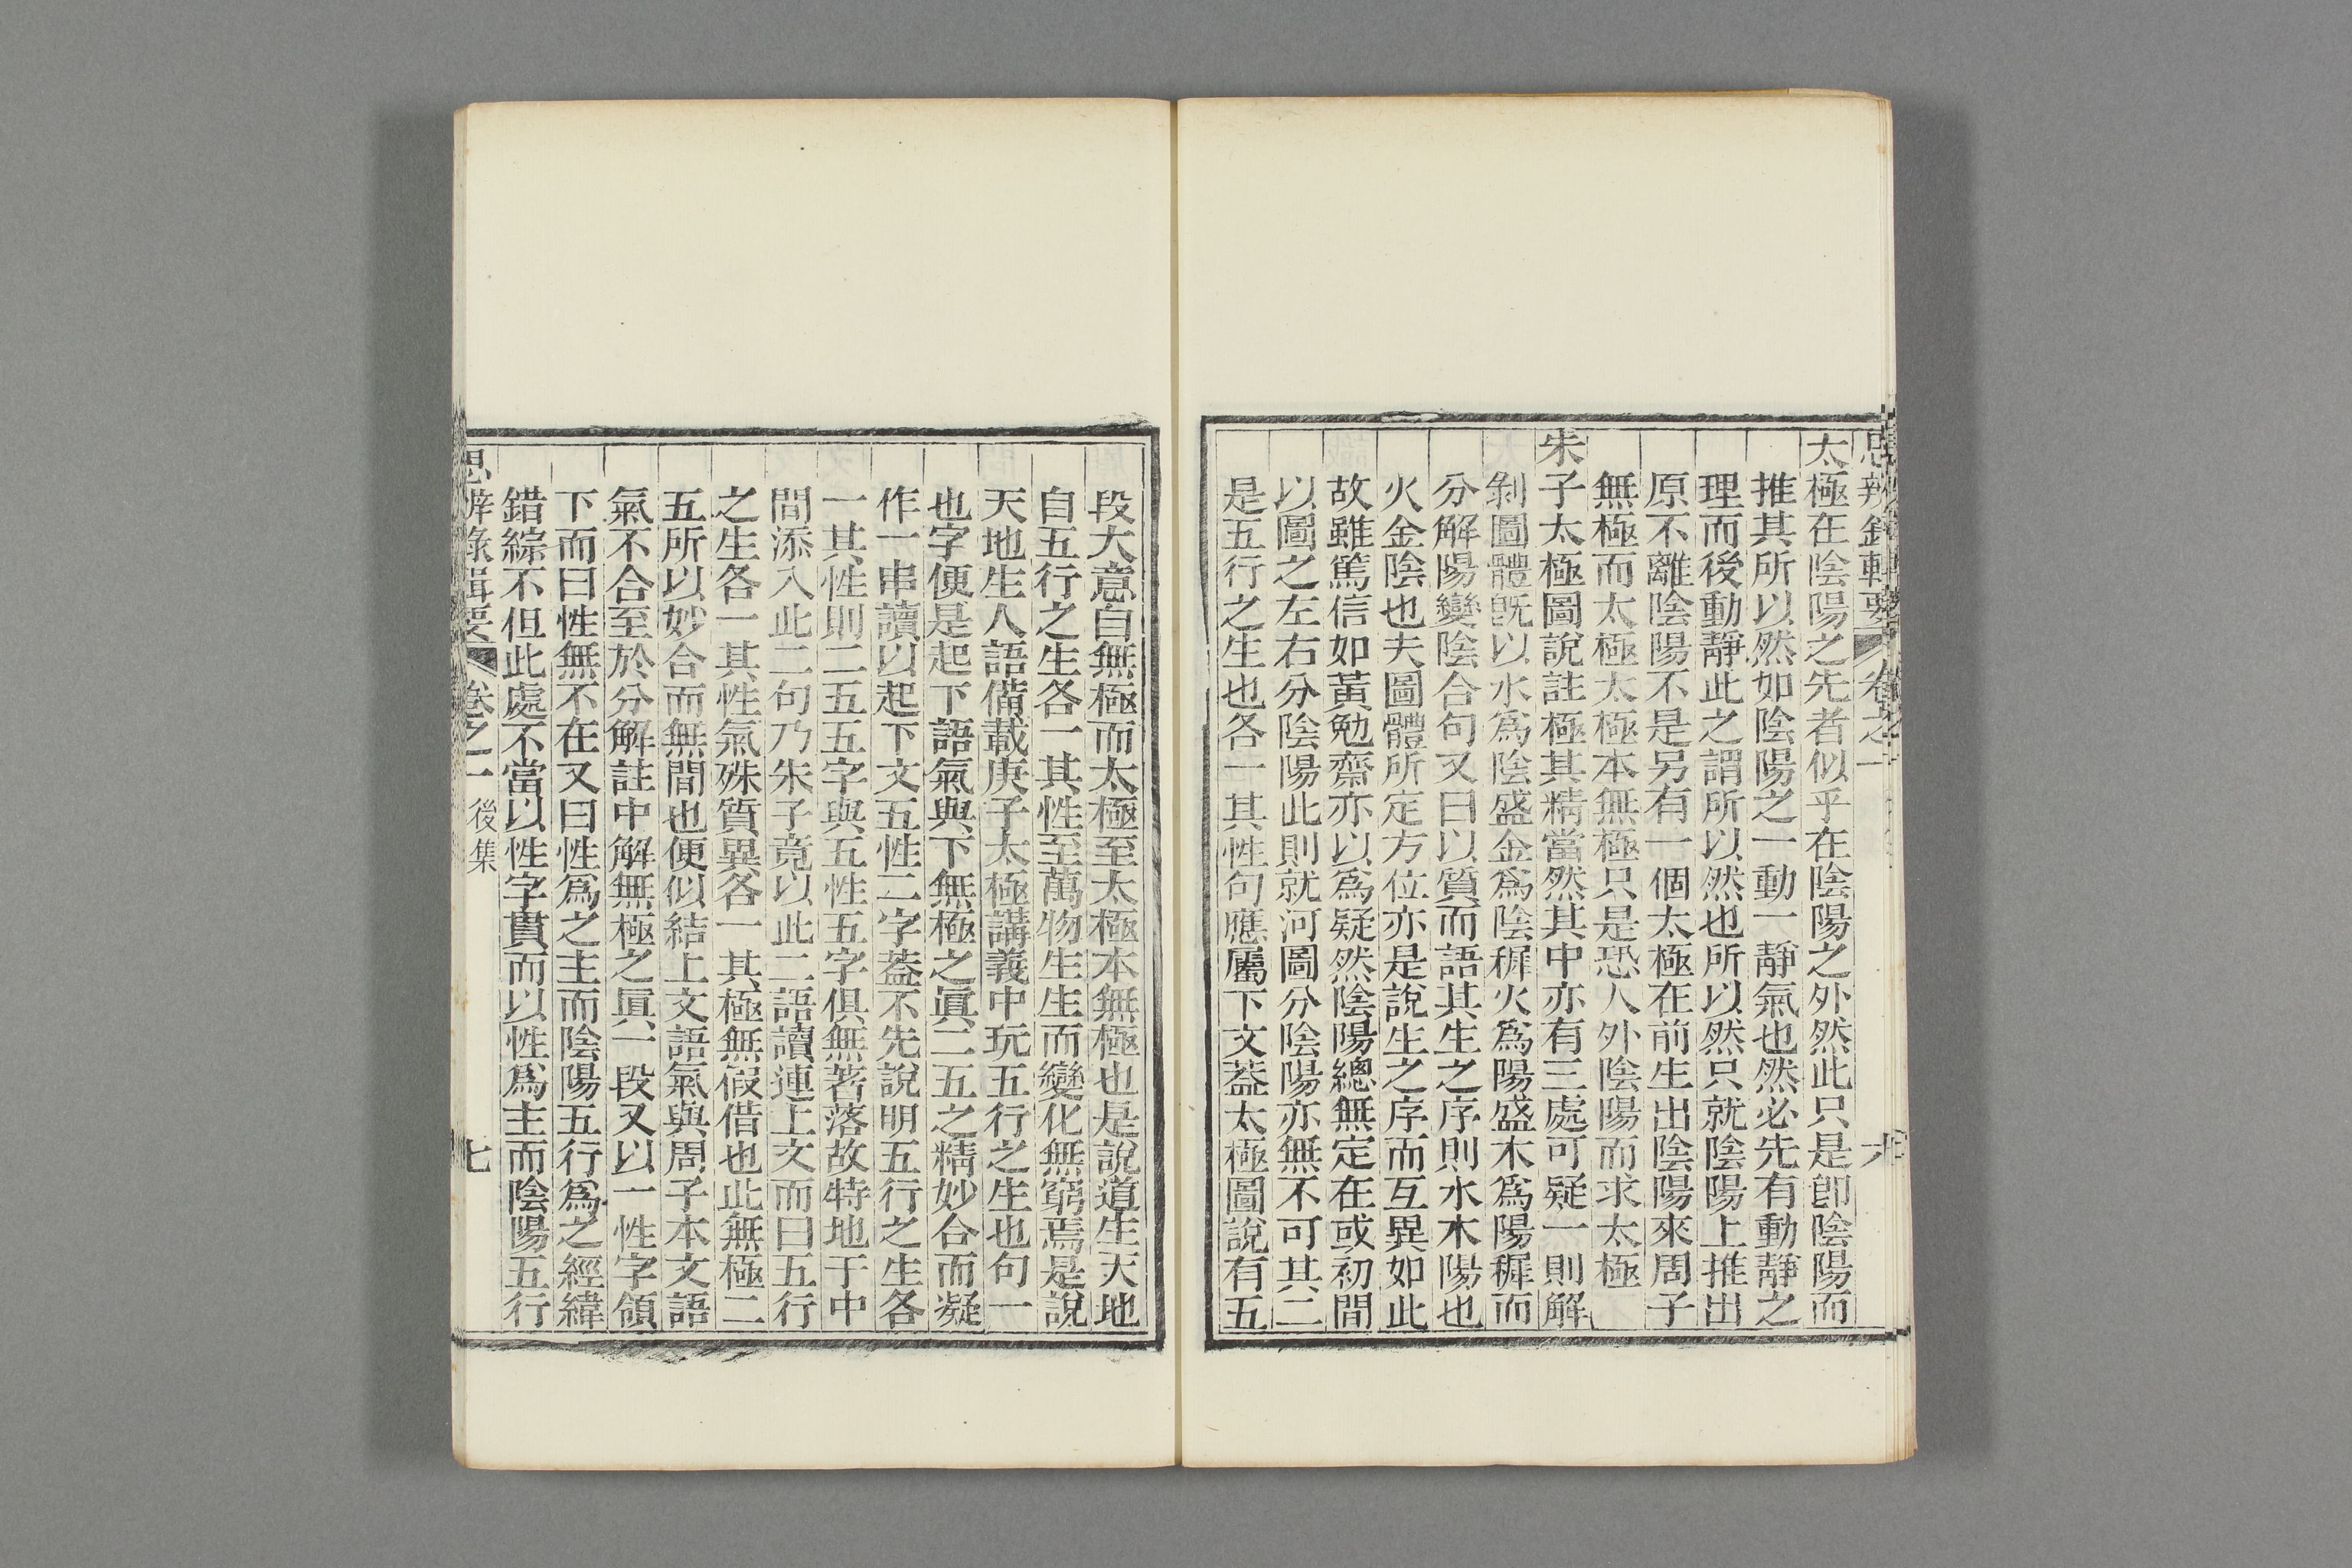 思辨錄輯要 卷之一 六
太極在陰陽之先者似乎在陰陽之外然此只是卽陰陽而
推其所以然如陰陽之一動一靜氣也然必先有動靜之
理而後動靜此之謂所以然也所以然只就陰陽上推出
原不離陰陽不是另有一個太極在前生出陰陽來周子
無極而太極太極本無極只是恐人外陰陽而求太極
朱子太極圖說註極其精當然其中亦有三處可疑一則解
剝圖體旣以水爲陰盛金爲陰穉火爲陽盛木爲陽穉而
分解陽變陰合句又曰以質而語其生之序則水木陽也
火金陰也夫圖體所定方位亦是說生之序而互異如此
故雖篤信如黃勉齋亦以爲疑然陰陽總無定在或初間
以圖之左右分陰陽此則就河圖分陰陽亦無不可其二
是五行之生也各一其性句應屬下文葢太極圖說有五
段大意自無極而太極至太極本無極也是說道生天地
自五行之生各一其性至萬物生生而變化無窮焉是說
天地生人語備載庚子太極講義中玩五行之生也句一
也字便是起下語氣與下無極之眞二五之精妙合而凝
作一串讀以起下文五性二字葢不先說明五行之生各
一其性則二五五字與五性五字俱無著落故特地于中
間添入此二句乃朱子竟以此二語讀連上文而曰五行
之生各一其性氣殊質異各一其極無假借也此無極二
五所以妙合而無間也便似結上文語氣與周子本文語
氣不合至於分解註中解無極之眞一段又以一性字領
下而曰性無不在又曰性爲之主而陰陽五行爲之經緯
錯綜不但此處不當以性字貫而以性爲主而陰陽五行
思辨錄輯要 卷之一 後集 七